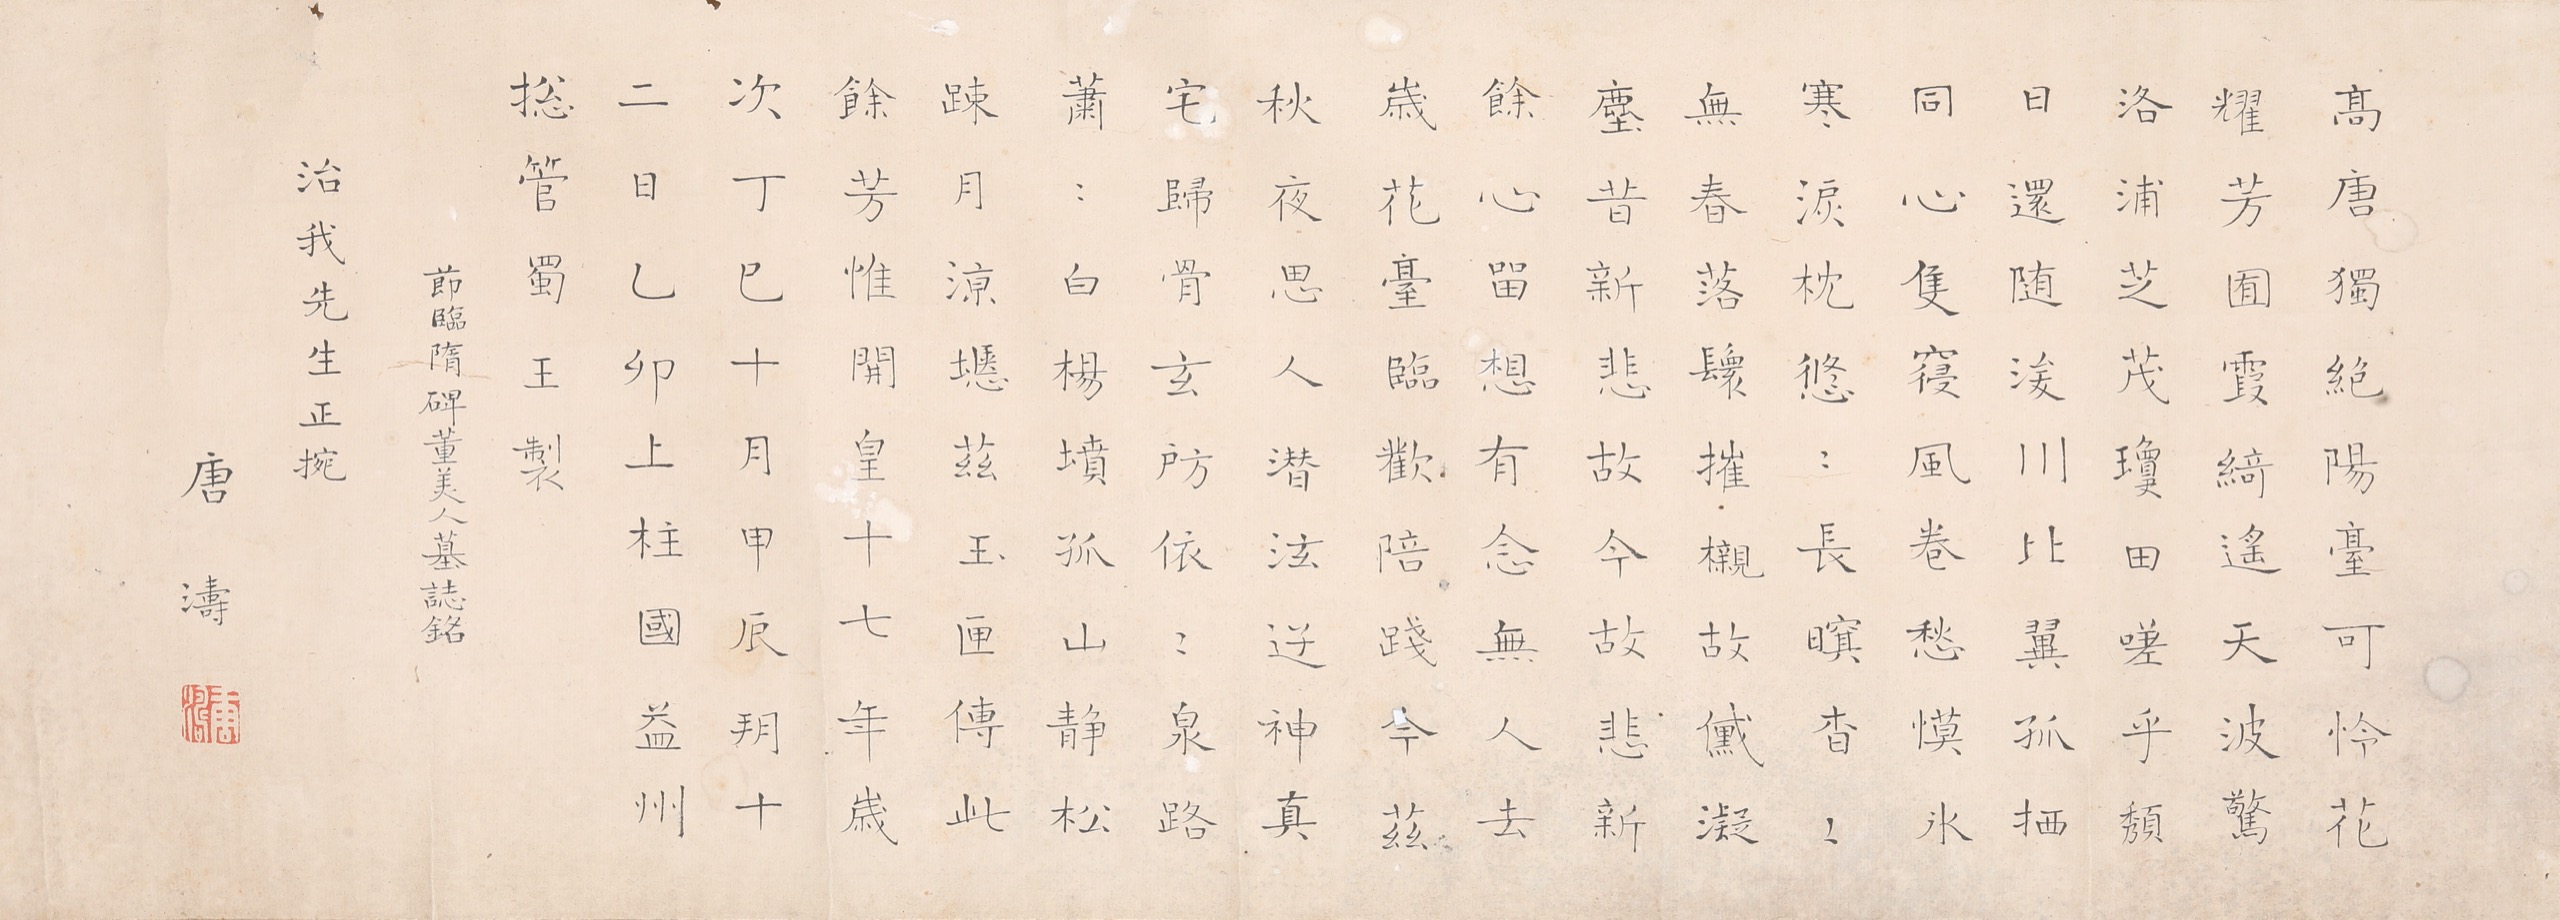 髙唐獨絶陽臺可怜花
耀芳囿霞綺遙天波驚
洛浦芝茂瓊田嗟乎頽
日還随湲川比翼孤栖
同心隻寝風卷愁慔氷
寒淚枕悠〻長暝杳〻
無春落鬟摧櫬故黛凝
塵昔新悲故今故悲新
餘心留想有念無人去
歲花臺臨歡陪踐今茲
秋夜思人潛泫迸神真
宅歸骨玄防依〻泉路
蕭〻白楊墳孤山静松
踈月涼壥茲玉匣傳此
餘芳惟開皇十七年歲
次丁巳十月甲辰朔十
二日乙卯上柱國益州
揔管蜀王製
節臨隋碑董美人墓誌銘
治我先生正捥
唐濤
唐濤